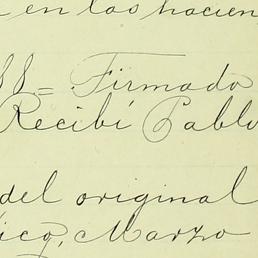 en las hacien
88= Firmado
Recibí Pablo
del original
ico, Marzo